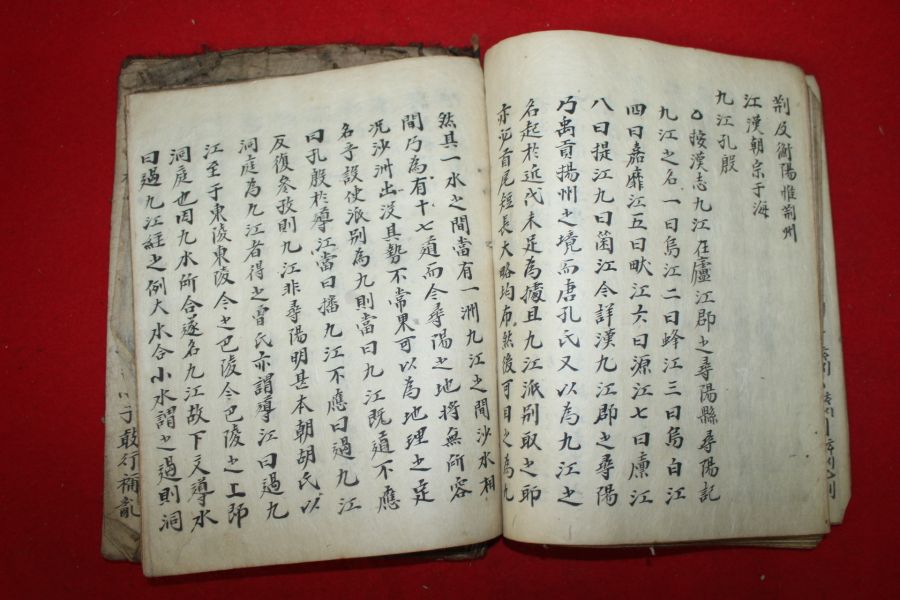 荊及衡陽惟荊州
江漢朝宗于海
九江孔殷
○按漢志九江在廬江郡之尋陽縣尋陽記
九江之名一曰烏江二曰蜂江三曰烏白江
四曰嘉靡江五曰畎江六曰源江七曰廩江
八曰提江九曰箘江今詳漢九江郡之尋陽
乃禹貢揚州之境而唐孔氏又以為九江之
名起於近代未足為據且九江派別取之耶
亦必首尾短長大略均布然後可目之為九
然其一水之間當有一洲九江之間沙水相
間乃為有十七道而今尋陽之地將無所容
況沙洲出沒其勢不常果可以為地理之定
名乎設使派別為九則當曰九江既道不應
曰孔殷於導江當曰播九江不應曰過九江
反復參攷則九江非尋陽明甚本朝胡氏以
洞庭為九江者得之曾氏亦謂導江曰過九
江至于東陵東陵今之巴陵今巴陵之上即
洞庭也因九水所合遂名九江故下文導水
曰過九江經之例大水合小水謂之過則洞
子敢行稱亂